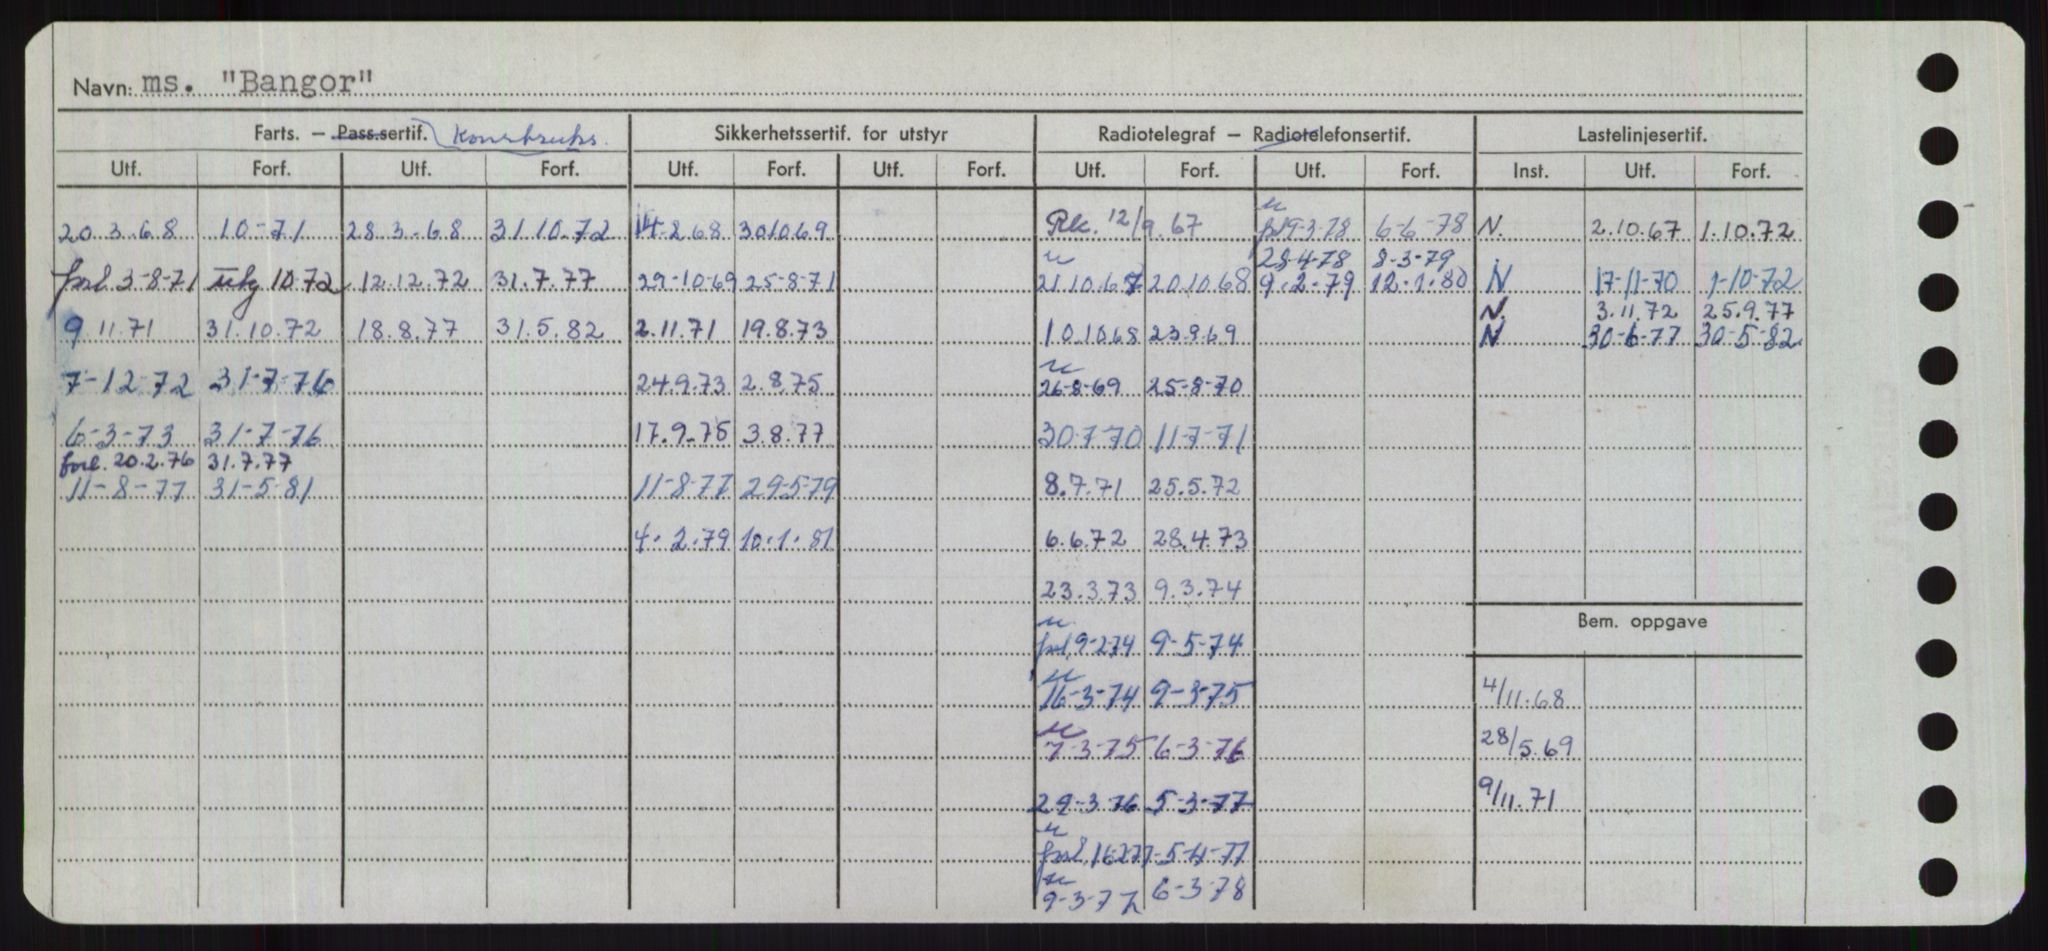 Navn: ms. "Bangor"
Farts. — Pass.sertif. Konstruks. Sikkerhetssertif. for utstyr Radiotelegraf — Radiotelefonsertif. Lastelinjesertif.
Utf. Forf. Utf. Forf. Utf. Forf. Utf. Forf. Utf. Forf. Utf. Forf. Inst. Utf. Forf.
20.3.68 10-71 28.3.68 31.10.72 14.2.68 30.10.69 Rk. 12/9.67 forl 9-3-78 6-6-78 N. 2.10.67 1.10.72
28-4-78 8-3-79
forl. 3-8-71 utg 10.72 12.12.72 31.7.77 29-10-69 25-8-71 21.10.67 20.10.68 9.2.79 12.1.80 N 17-11-70 1-10-72
N. 3.11.72 25.9.77
9.11.71 31.10.72 18.8.77 31.5.82 2.11.71 19.8.73 10.10.68 23.9.69 N 30-6-77 30-5-82
7-12-72 31-7-76 24.9.73 2.8.75 26-8-69 25-8-70
6-3-73 31-7-76 17.9.75 3.8.77 30-7-70 11-7-71
forl. 20.2.76 31.7.77
11-8-77 31-5-81 11-8-77 29-5-79 8.7.71 25.5.72
4.2.79 10.1.81 6.6.72 28.4.73
23.3.73 9.3.74
Bem. oppgave
forl. 9-2-74 9-5-74
16-3-74 9-3-75 4/11.68
7-3-75 6-3-76 28/5.69
29-3-76 5-3-77 9/11.71
forl. 16-2-77 5-4-77
9-3-77 6-3-78